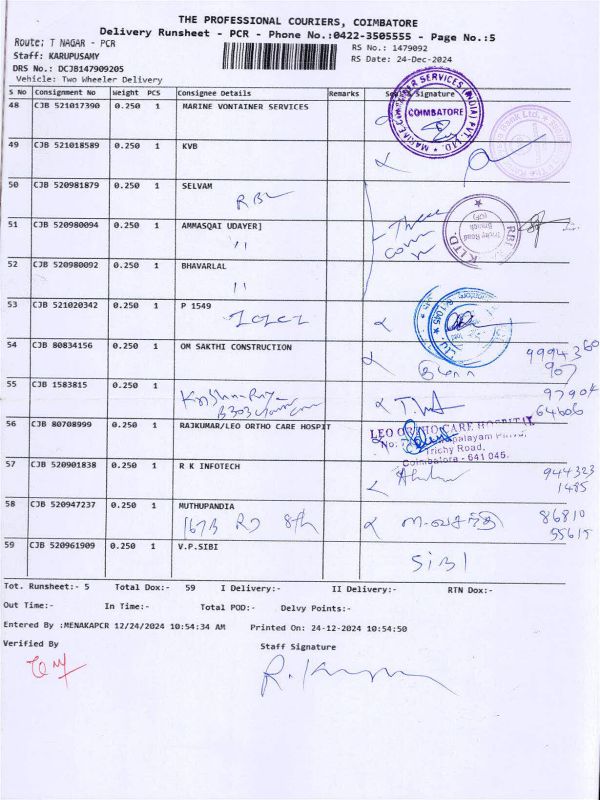 THE PROFESSIONAL COURIERS, COIMBATORE
Delivery Runsheet - PCR - Phone No.:0422-3505555 - Page No.:5
Route: T NAGAR - PCR
RS No.: 1479092
Staff: KARUPUSAMY
RS Date: 24-Dec-2024
DRS No.: DCJB147909205
Vehicle: Two Wheeler Delivery
S No Consignment No Weight PCS Consignee Details Remarks Signature
48 CJB 521017390 0.250 1 MARINE VONTAINER SERVICES
COIMBATORE
49 CJB 521018589 0.250 1 KVB
50 CJB 520981879 0.250 1 SELVAM
RBL
51 CJB 520980094 0.250 1 AMMASQAI UDAYER]
These
52 CJB 520980092 0.250 1 BHAVARLAL
53 CJB 521020342 0.250 1 P 1549
54 CJB 80834156 0.250 1 OM SAKTHI CONSTRUCTION
55 CJB 1583815 0.250 1
B303
56 CJB 80708999 0.250 1 RAJKUMAR/LEO ORTHO CARE HOSPIT
LEO ORTHO CARE HOSPITAL
Trichy Road,
Coimbatore - 641 045.
57 CJB 520901838 0.250 1 R K INFOTECH
944323
1485
58 CJB 520947237 0.250 1 MUTHUPANDIA
167B RJ 8th
86810
55615
59 CJB 520961909 0.250 1 V.P.SIBI
SIBI
Tot. Runsheet:- 5 Total Dox:- 59 I Delivery:- II Delivery:- RTN Dox:-
Out Time:- In Time:- Total POD:- Delvy Points:-
Entered By :MENAKAPCR 12/24/2024 10:54:34 AM Printed On: 24-12-2024 10:54:50
Verified By
Staff Signature